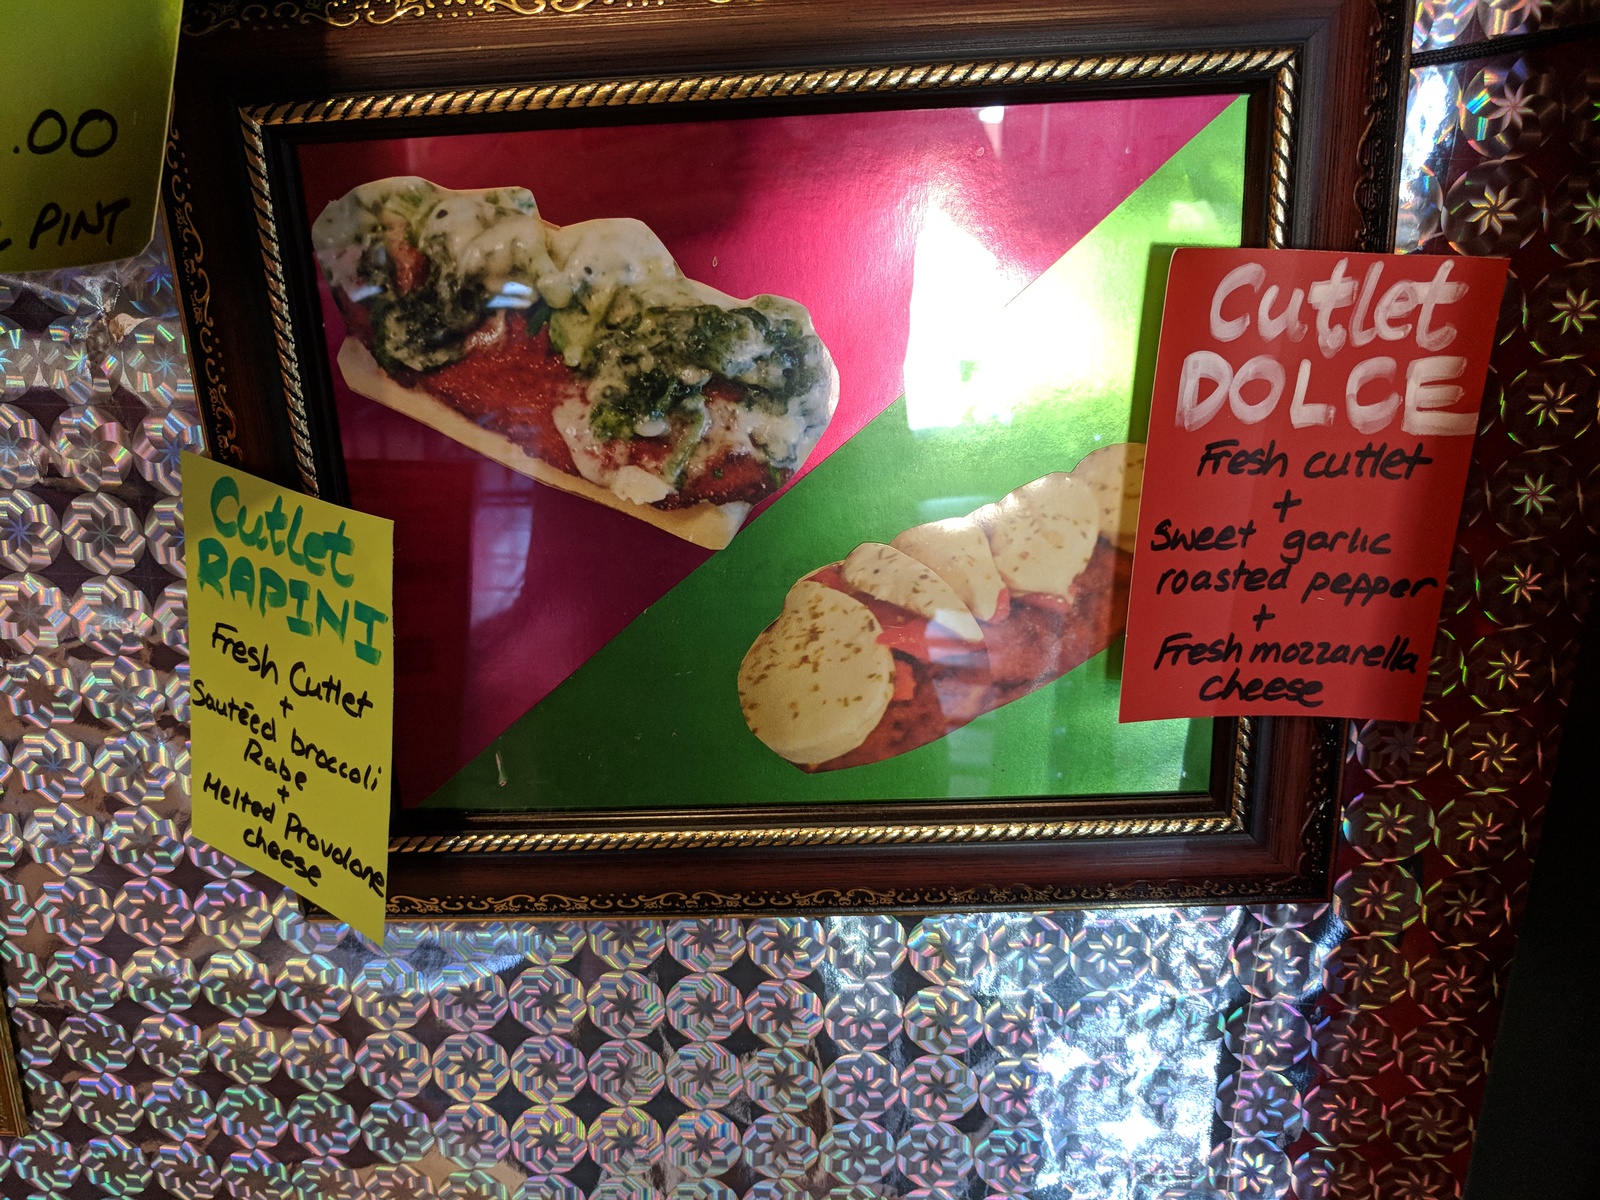 .00
PINT
Cutlet
RAPINI
Fresh Cutlet
+
Sautéed broccoli
Rabe
+
Melted Provolone
cheese
Cutlet
DOLCE
Fresh cutlet
+
Sweet garlic
roasted pepper
+
Fresh mozzarella
cheese